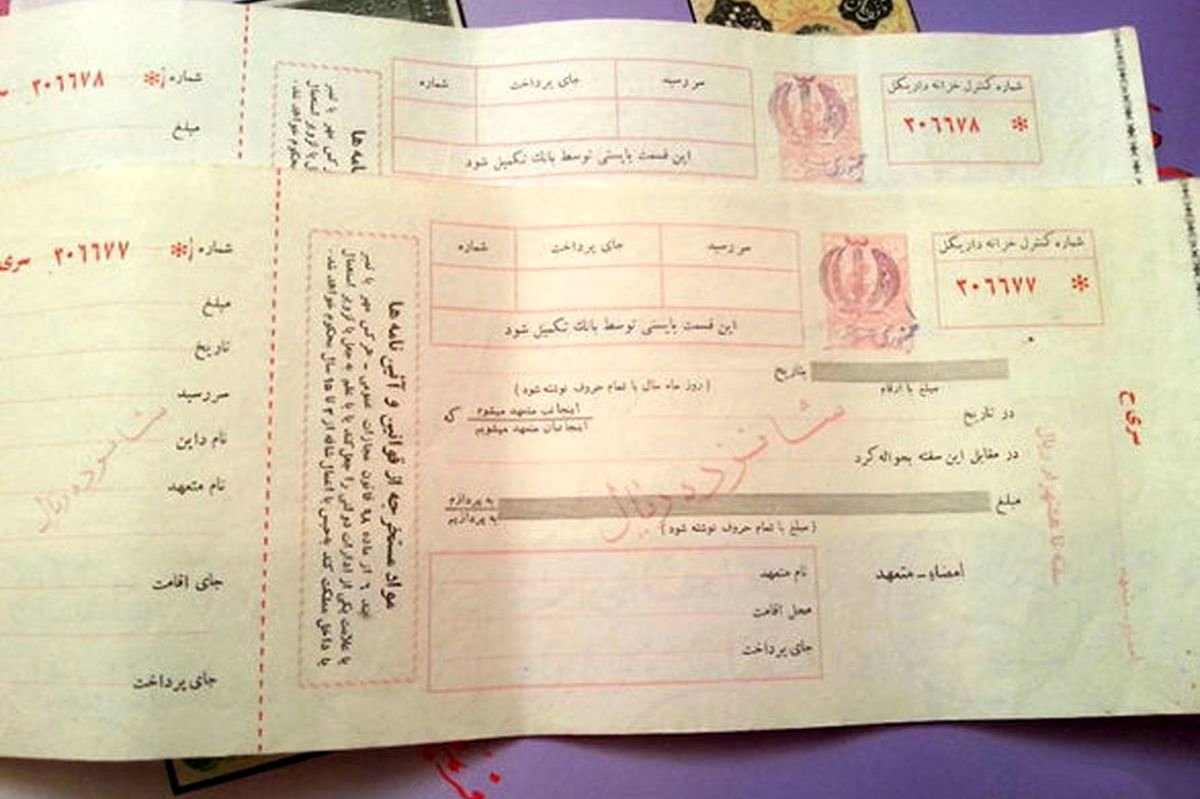 شماره ز * ۳۰۶۶۷۸
مبلغ
شماره
جای پرداخت
سررسید
این قسمت بایستی توسط بانك تكمیل شود
شماره كنترل خزانه داری كل
* ۳۰۶۶۷۸
شماره ز * ۳۰۶۶۷۷ سری
مبلغ
تاریخ
سررسید
نام داین
نام متعهد
جای اقامت
جای پرداخت
شانزده ریال
مواد مستخرجه از قوانین و آئین نامه ها
شماره
جای پرداخت
سررسید
این قسمت بایستی توسط بانك تكمیل شود
جمهوری
شماره كنترل خزانه داری كل
* ۳۰۶۶۷۷
بتاریخ
مبلغ با ارقام
( روز ماه سال با تمام حروف نوشته شود )
در تاریخ
اینجانب متعهد میشوم
اینجانبان متعهد میشویم
كه
در مقابل این سفته بحواله كرد
مبلغ
به پردازم
به پردازیم
( مبلغ با تمام حروف نوشته شود )
شانزده ریال
نام متعهد
محل اقامت
جای پرداخت
امضاء - متعهد
سری ح